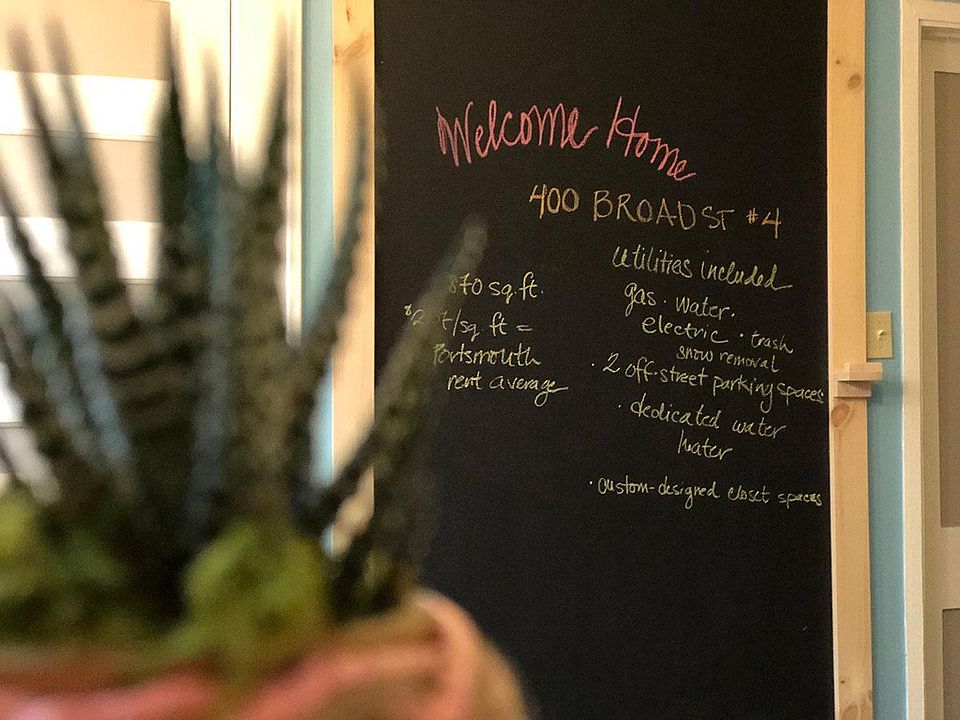 Welcome Home
400 BROAD ST #4
870 sq.ft.
/sq. ft =
Portsmouth
rent average
utilities included
gas · water ·
electric · trash
snow removal
· 2 off-street parking spaces
· dedicated water
heater
· custom-designed closet spaces